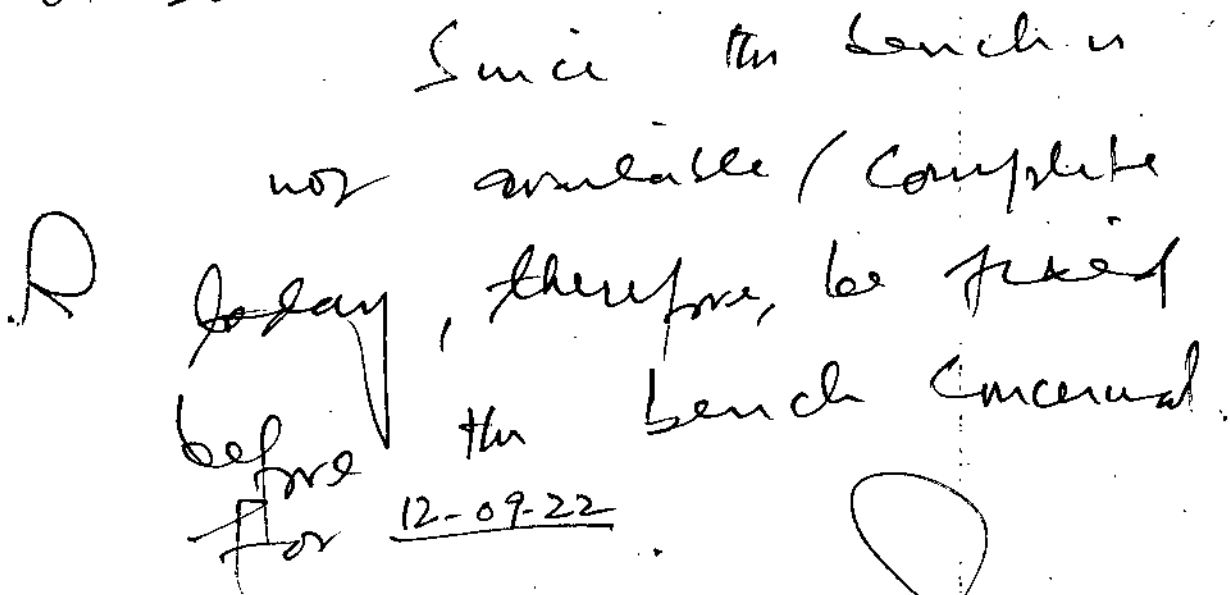 Since the bench is
not available / complete
today, therefore, be fixed
before the bench concerned.
for 12-09-22.